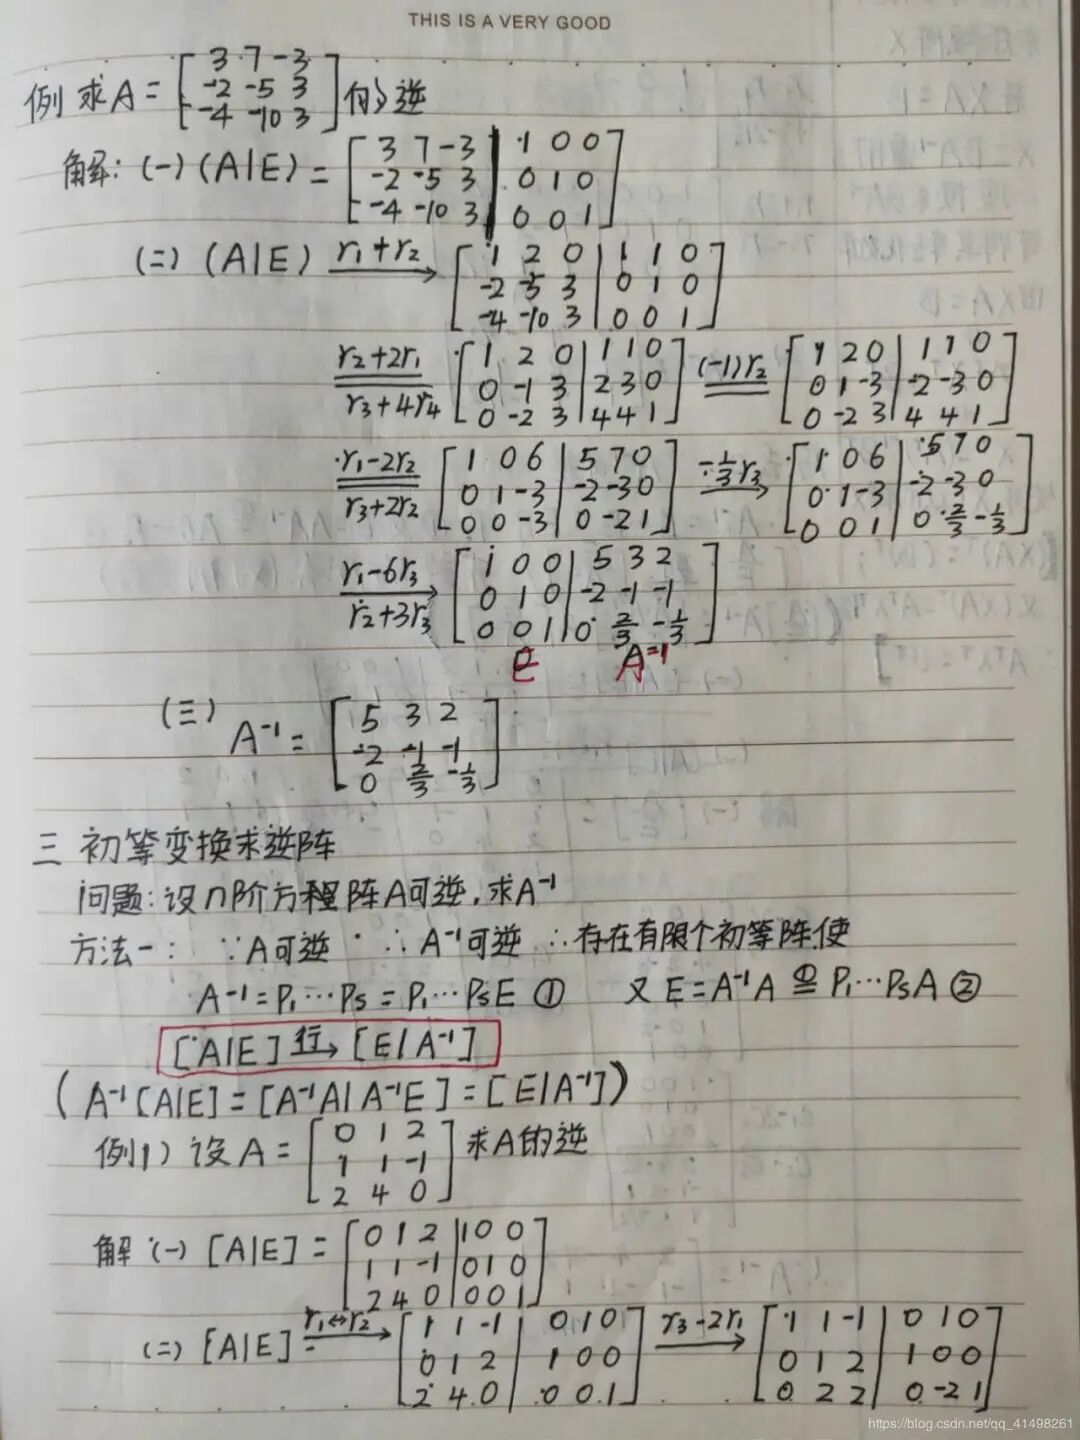 THIS IS A VERY GOOD
例 求A = [3 7 -3
-2 -5 3
-4 -10 3] 的逆
解: (一) (A|E) = [3 7 -3 | 1 0 0
-2 -5 3 | 0 1 0
-4 -10 3 | 0 0 1]
(二) (A|E) r₁+r₂ → [1 2 0 | 1 1 0
-2 -5 3 | 0 1 0
-4 -10 3 | 0 0 1]
r₂+2r₁ r₃+4r₄ [1 2 0 | 1 1 0
0 -1 3 | 2 3 0
0 -2 3 | 4 4 1] (-1)r₂ [1 2 0 | 1 1 0
0 1 -3 | -2 -3 0
0 -2 3 | 4 4 1]
r₁-2r₂ r₃+2r₂ [1 0 6 | 5 7 0
0 1 -3 | -2 -3 0
0 0 -3 | 0 -2 1] -1/3 r₃ → [1 0 6 | 5 7 0
0 1 -3 | -2 -3 0
0 0 1 | 0 2/3 -1/3]
r₁-6r₃ r₂+3r₃ → [1 0 0 | 5 3 2
0 1 0 | -2 -1 -1
0 0 1 | 0 2/3 -1/3]
E A⁻¹
(三) A⁻¹ = [5 3 2
-2 -1 -1
0 2/3 -1/3]
三 初等变换求逆阵
问题: 设n阶方程阵A可逆, 求A⁻¹
方法一: ∵A可逆 ∴A⁻¹可逆 ∴存在有限个初等阵,使
A⁻¹ = P₁⋯Ps = P₁⋯PsE ① 又 E = A⁻¹A ①= P₁⋯PsA ②
[A|E] 行→ [E|A⁻¹]
(A⁻¹[A|E] = [A⁻¹A|A⁻¹E] = [E|A⁻¹])
例1) 设A = [0 1 2
1 1 -1
2 4 0] 求A的逆
解 (一) [A|E] = [0 1 2 | 1 0 0
1 1 -1 | 0 1 0
2 4 0 | 0 0 1]
(二) [A|E] r₁↔r₂ → [1 1 -1 | 0 1 0
0 1 2 | 1 0 0
2 4 0 | 0 0 1] r₃-2r₁ → [1 1 -1 | 0 1 0
0 1 2 | 1 0 0
0 2 2 | 0 -2 1]
https://blog.csdn.net/qq_41498261